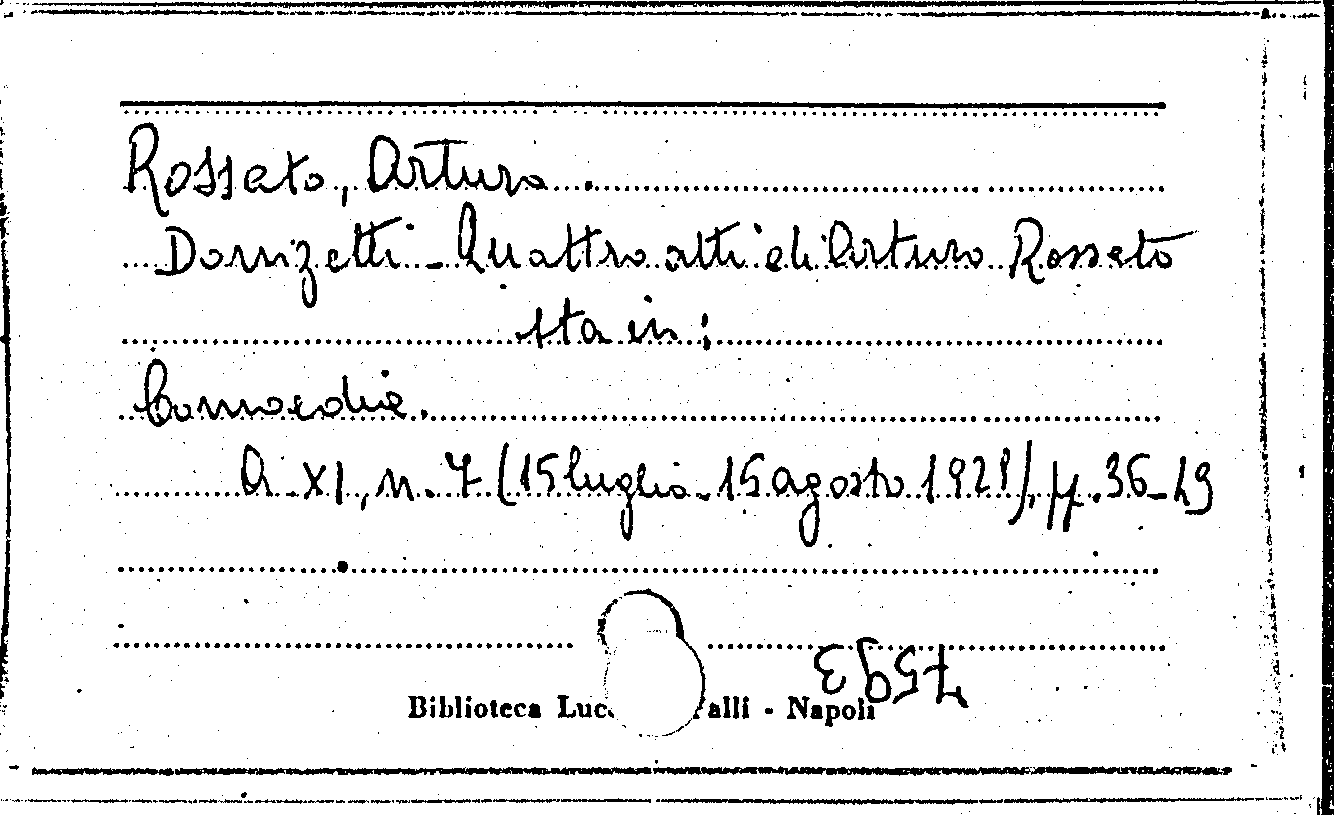 Rossato, Arturo.
Donizetti - Quattro atti di Arturo Rossato
sta in:
Comoedia.
A. XI, n. 7 (15 luglio - 15 agosto 1929), pp. 36-
7593
Biblioteca Luc alli - Napoli